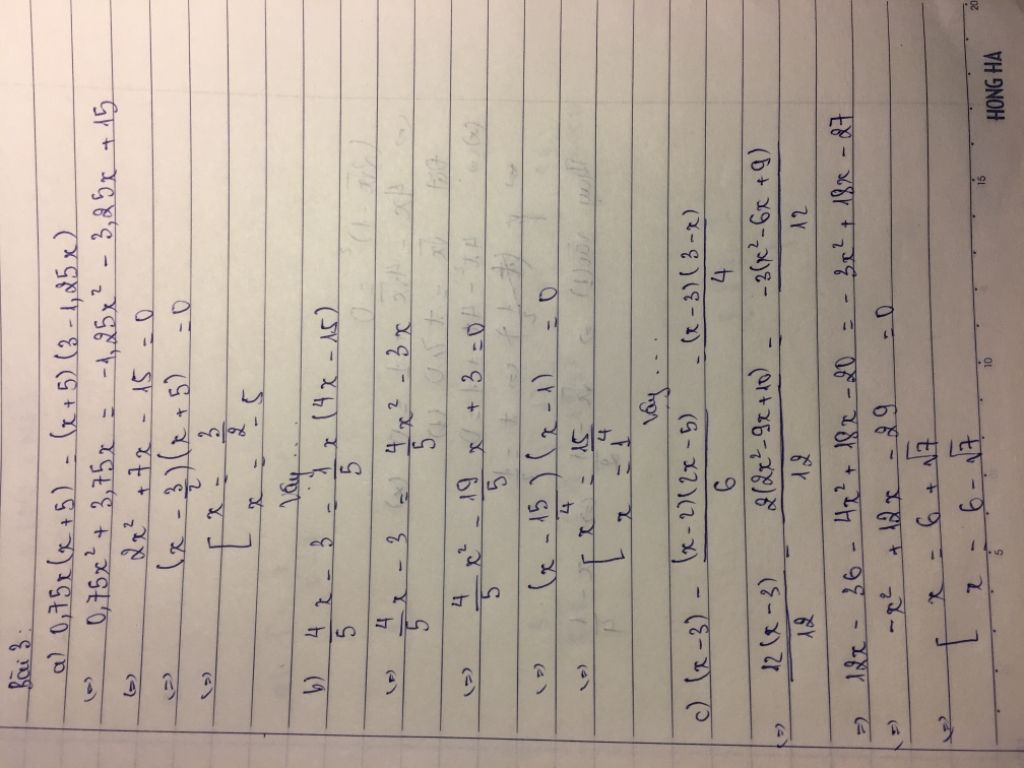 Bài 3.
a) 0,75x(x+5) = (x+5)(3-1,25x)
(=) 0,75x² + 3,75x = -1,25x² - 3,25x + 15
(=) 2x² + 7x - 15 = 0
(=) (x - 3/2)(x+5) = 0
(=) [ x = 3/2
x = -5
Vậy...
b) 4/5 x - 3 = 1/5 x(4x-15)
(=) 4/5 x - 3 = 4/5 x² - 3x
(=) 4/5 x² - 19/5 x + 3 = 0
(=) (x - 15/4)(x-1) = 0
(=) [ x = 15/4
x = 1
Vậy...
c) (x-3) - (x-2)(2x-5)/6 = (x-3)(3-x)/4
(=) 12(x-3)/12 - 2(2x²-9x+10)/12 = -3(x²-6x+9)/12
(=) 12x - 36 - 4x² + 18x - 20 = -3x² + 18x - 27
(=) -x² + 12x - 29 = 0
(=) [ x = 6 + √7
x = 6 - √7
5 10 15 20
HONG HA